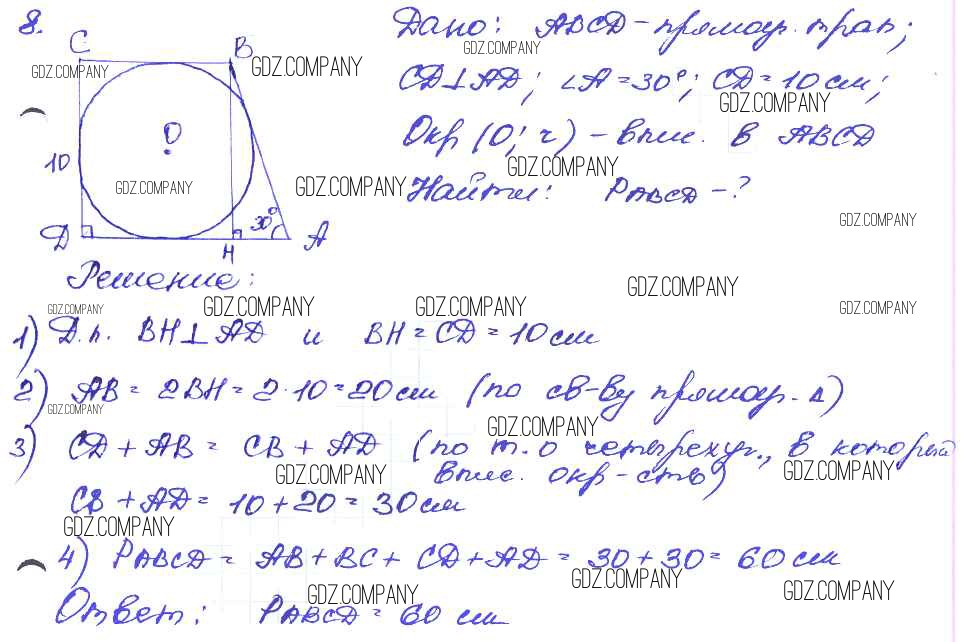 8.
Дано: ABCD – прямоуг. трап;
C B
GDZ.COMPANY GDZ.COMPANY GDZ.COMPANY
CD⊥AD; ∠A = 30°; CD = 10 см;
GDZ.COMPANY
O
Окр (O; r) – впис. в ABCD
10
GDZ.COMPANY GDZ.COMPANY GDZ.COMPANY
Найти: PABCD – ?
GDZ.COMPANY
30°
D H A
Решение:
GDZ.COMPANY
GDZ.COMPANY GDZ.COMPANY GDZ.COMPANY GDZ.COMPANY
1) Д.п. BH⊥AD и BH = CD = 10 см
2) AB = 2BH = 2·10 = 20 см (по св-ву прямоуг. Δ)
GDZ.COMPANY GDZ.COMPANY
3) CD + AB = CB + AD (по т. о четырехуг., в который
впис. окр-сть)
GDZ.COMPANY GDZ.COMPANY
CB + AD = 10 + 20 = 30 см
GDZ.COMPANY
4) PABCD = AB + BC + CD + AD = 30 + 30 = 60 см
GDZ.COMPANY GDZ.COMPANY GDZ.COMPANY
Ответ: PABCD = 60 см